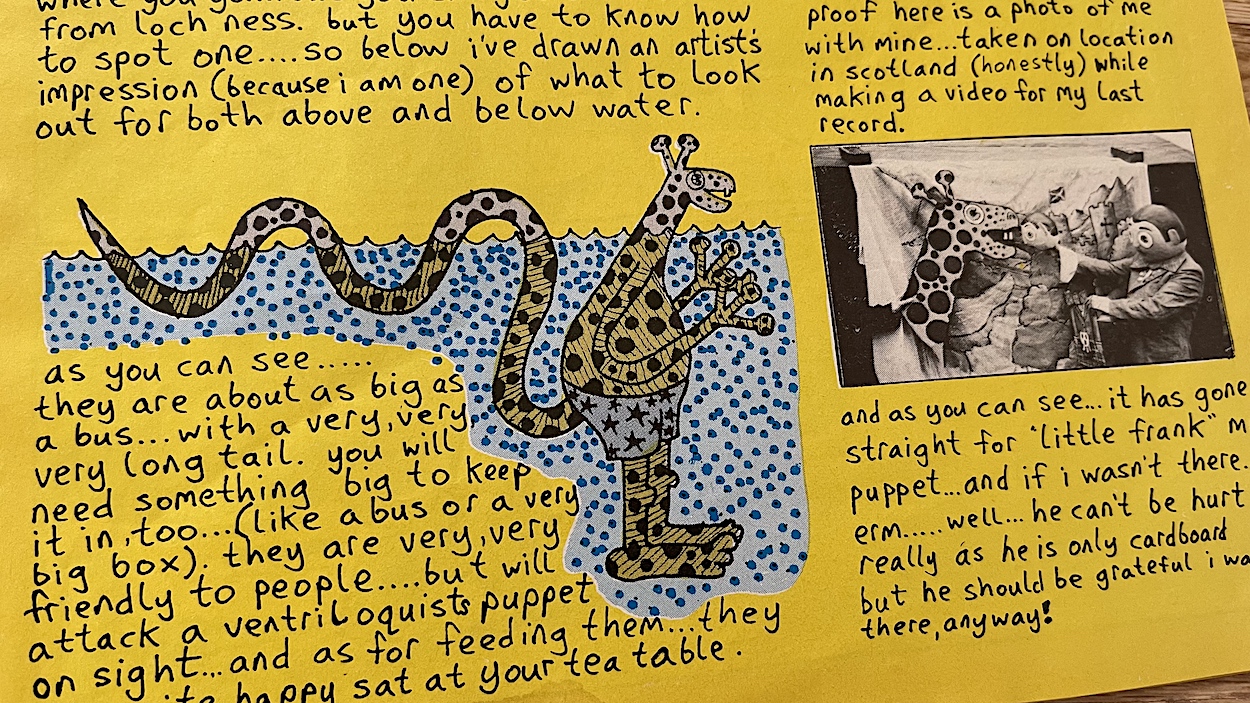 from loch ness. but you have to know how
to spot one....so below i've drawn an artist's
impression (because i am one) of what to look
out for both above and below water.
as you can see.....
they are about as big as
a bus...with a very, very
very long tail. you will
need something big to keep
it in, too...(like a bus or a very
big box). they are very, very
friendly to people....but will
attack a ventriloquists puppet
on sight...and as for feeding them...they
happy sat at your tea table.
proof here is a photo of me
with mine...taken on location
in scotland (honestly) while
making a video for my last
record.
and as you can see...it has gone
straight for "little frank" m
puppet...and if i wasn't there.
erm.....well... he can't be hurt
really as he is only cardboard
but he should be grateful i wa
there, anyway!